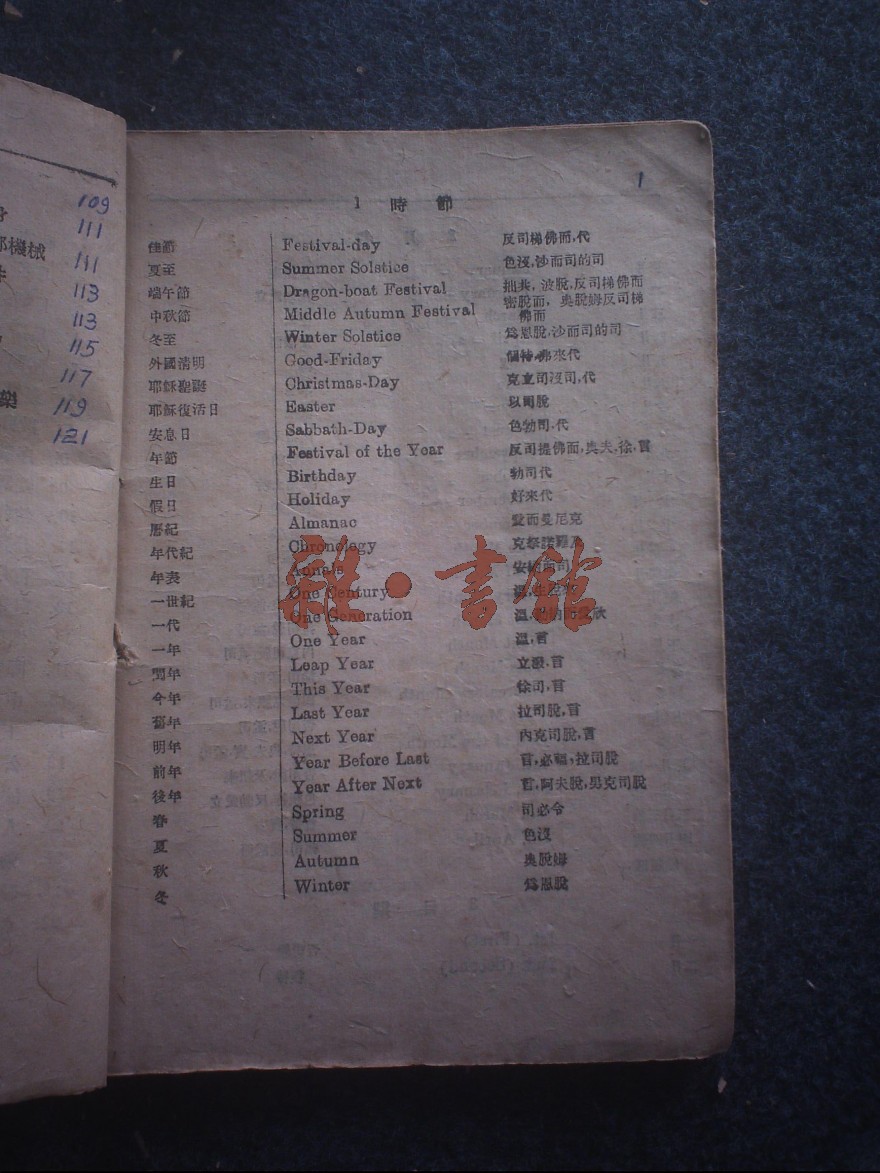 109
111
部機械
111
113
113
115
117
樂
119
121
1
1 時節
佳節 Festival-day 反司梯佛而,代
夏至 Summer Solstice 色沒,沙而司的司
端午節 Dragon-boat Festival 拙共,波脫,反司梯佛而
中秋節 Middle Autumn Festival 密脫而,奥脫姆反司梯
佛而
冬至 Winter Solstice 爲恩脫,沙而司的司
外國清明 Good-Friday 個特,弗來代
耶穌聖誕 Christmas-Day 克立司沒司,代
耶穌復活日 Easter 以司脫
安息日 Sabbath-Day 色勃司,代
年節 Festival of the Year 反司提佛而,奥夫,徐,買
生日 Birthday 勃司代
假日 Holiday 好來代
曆紀 Almanac 曼尼克
年代紀 Chronology
年表 Annals
一世紀 One Century
一代 One Generation
一年 One Year 溫,買
閏年 Leap Year 立潑,買
今年 This Year 徐司,買
舊年 Last Year 拉司脫,買
明年 Next Year 內克司脫,買
前年 Year Before Last 買,必福,拉司脫
後年 Year After Next 買,阿夫脫,男克司脫
春 Spring 司必令
夏 Summer 色沒
秋 Autumn 奥脫姆
冬 Winter 爲恩脫
雜·書館